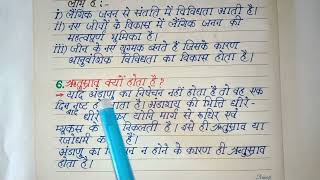 लाभ हैं:-
i) लैंगिक जनन से संतति में विविधता आती है।
ii) नए जीवों के विकास में लैंगिक जनन की
महत्वपूर्ण भूमिका है।
iii) जीन के नए युग्मक बनते हैं जिसके कारण
आनुवंशिक विविधता का विकास होता है।
6. ऋतुस्राव क्यों होता है?
→ यदि अंडाणु का निषेचन नहीं होता है तो वह एक
दिन बाद नष्ट हो जाता है। अंडाशय की भित्ति धीरे-
धीरे कर योनि मार्ग से रुधिर एवं
म्यूकस के निकलती है। इसे ही ऋतुस्राव या
रजोधर्म कहते हैं।
अंडाणु का निषेचन न होने के कारण ही ऋतुस्राव
होता है।